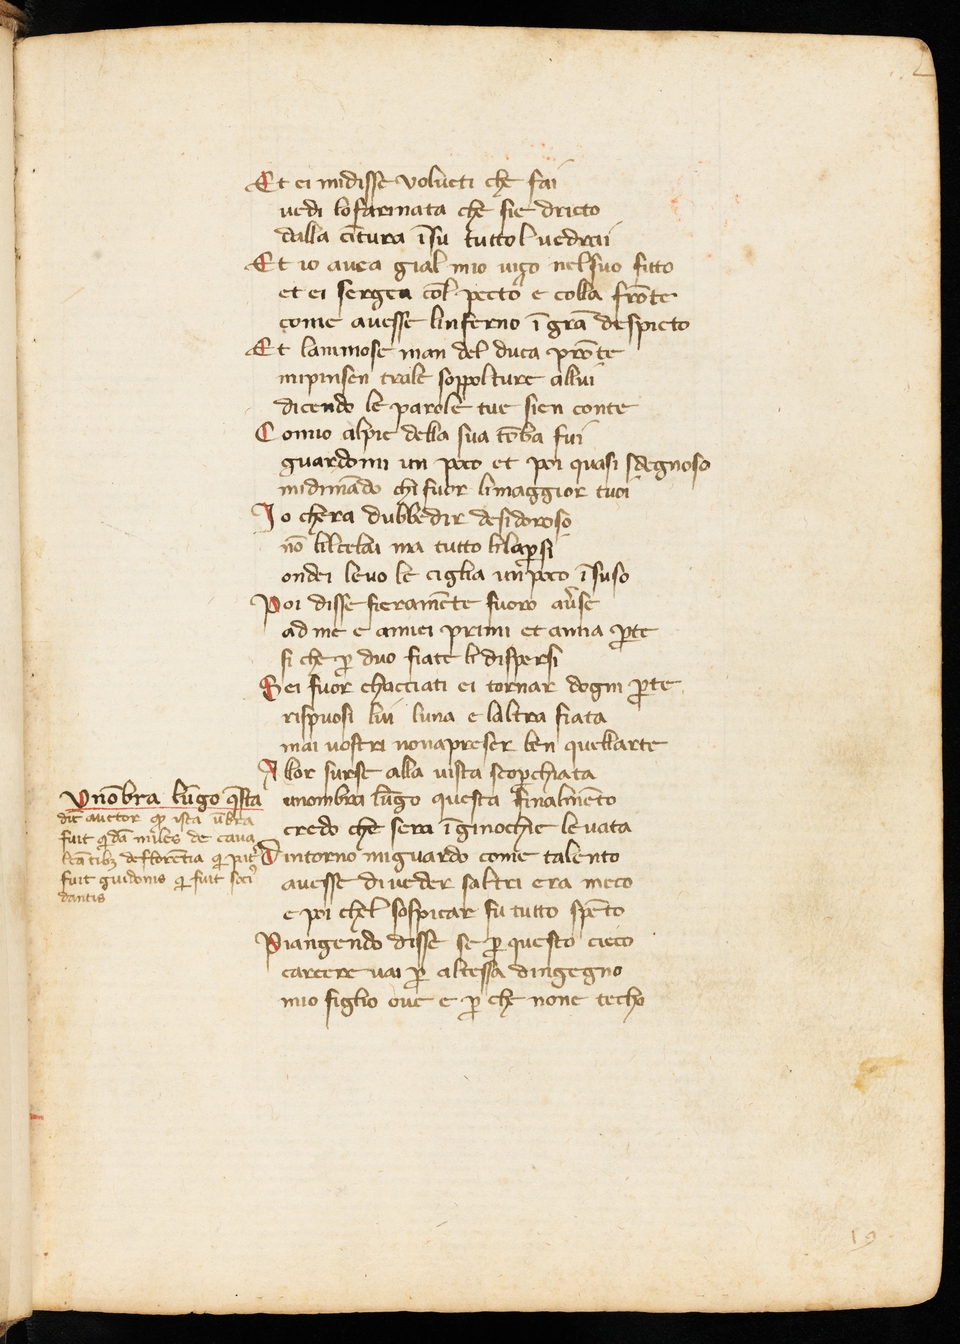 Et ei midisse volueti che fai
uedi lofarinata che sie dricto
dalla cītura īsu tuttol uedrai
Et io auea gial mio uiso nelsuo fitto
et ei sergea col pecto e colla frōte
come auesse linferno ī grā despicto
Et lanimose man del duca prōte
mipinsen trale soppolture allui
dicendo le parole tue sien conte
Comio alpie della sua tōba fui
guardomi un poco et poi quasi sdegnoso
midimādo chi fuor limaggior tuoi
Io chera dubbedir desideroso
nō lilcelai ma tutto lilapsi
ondei leuo le ciglia un poco īsuso
Poi disse fieramēte fuoro ause
ad me e amiei primi et amia pte
si che p duo fiate li dispersi
Sei fuor chacciati ei tornar dogni pte
rispuosi lui luna e laltra fiata
mai uostri nonapreser ben quellarte
Allor surse alla uista scoperchiata
unombra lūgo questa finalmēto
credo che sera ī ginochie leuata
Dintorno miguardo come talento
auesse di ueder saltri era meco
e poi chel sospicar fu tutto spēto
Piangendo disse se p questo cieco
carcere uai p altessa dingegno
mio figlio oue e p che none techo
Vnōbra lūgo qsta
dic auctor qp ista ūbra
fuit qdā miles de caua
de florētia
fuit guidonis q fuit soci
dantis
19